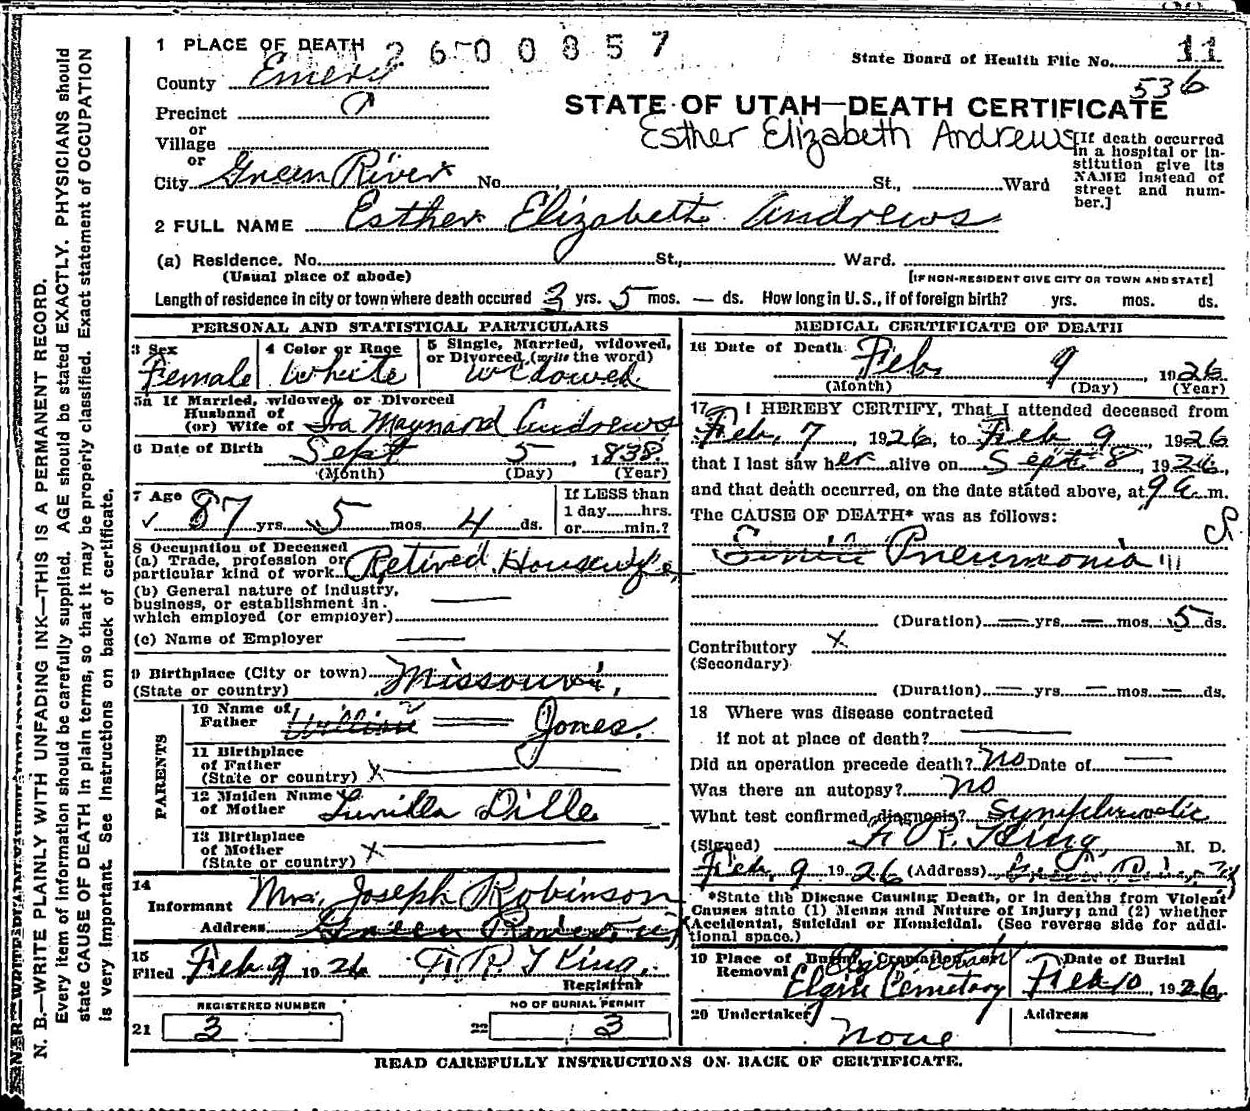 1 PLACE OF DEATH 2600857
State Board of Health File No. 11
536
County Emery
Precinct
or
Village
or
City Green River No. St., Ward
STATE OF UTAH—DEATH CERTIFICATE
Esther Elizabeth Andrews
[If death occurred
in a hospital or in-
stitution give its
NAME instead of
street and num-
ber.]
2 FULL NAME Esther Elizabeth Andrews
(a) Residence. No. St., Ward.
(Usual place of abode)
[IF NON-RESIDENT GIVE CITY OR TOWN AND STATE]
Length of residence in city or town where death occured 3 yrs. 5 mos. — ds. How long in U. S., if of foreign birth? yrs. mos. ds.
PERSONAL AND STATISTICAL PARTICULARS
3 Sex
Female
4 Color or Rage
White
5 Single, Married, widowed,
or Divorced (write the word)
Widowed
5a If Married, widowed, or Divorced
Husband of
(or) Wife of Ira Maynard Andrews
6 Date of Birth Sept 5, 1838
(Month) (Day) (Year)
7 Age
87 yrs. 5 mos. 4 ds.
If LESS than
1 day hrs.
or min.?
8 Occupation of Deceased
(a) Trade, profession or
particular kind of work Retired Housewife
(b) General nature of industry,
business, or establishment in
which employed (or employer) —
(c) Name of Employer —
9 Birthplace (City or town) Missouri,
(State or country)
PARENTS
10 Name of
Father William — Jones.
11 Birthplace
of Father
(State or country) x
12 Maiden Name
of Mother Dille
13 Birthplace
of Mother
(State or country) x
14
Informant Mrs. Joseph Robinson
Address Green River, Ut
15
Filed Feb 9 1926 King.
Registrar
REGISTERED NUMBER
21 3
NO OF BURIAL PERMIT
22 3
MEDICAL CERTIFICATE OF DEATH
16 Date of Death Feb. 9, 1926
(Month) (Day) (Year)
17 I HEREBY CERTIFY, That I attended deceased from
Feb. 7, 1926, to Feb 9, 1926
that I last saw her alive on Sept 8, 1926,
and that death occurred, on the date stated above, at 9 a m.
The CAUSE OF DEATH* was as follows:
Senile Pneumonia
(Duration) — yrs. — mos. 5 ds.
Contributory x
(Secondary)
(Duration) — yrs. — mos. — ds.
18 Where was disease contracted
if not at place of death? —
Did an operation precede death? no Date of —
Was there an autopsy? no
What test confirmed diagnosis? Symptomatic
(Signed) King, M. D.
Feb, 9 1926 (Address)
*State the Disease Causing Death, or in deaths from Violent
Causes state (1) Menns and Nature of Injury; and (2) whether
Accidental, Suicidal or Homicidal. (See reverse side for addi-
tional space.)
19 Place of Burial, Cremation or
Removal
Elgin Cemetary
Date of Burial
Feb 10, 1926
20 Undertaker
none
Address
—
READ CAREFULLY INSTRUCTIONS ON BACK OF CERTIFICATE.
N. B.—WRITE PLAINLY WITH UNFADING INK—THIS IS A PERMANENT RECORD.
Every item of information should be carefully supplied. AGE should be stated EXACTLY. PHYSICIANS should
state CAUSE OF DEATH in plain terms, so that it may be properly classified. Exact statement of OCCUPATION
is very important. See instructions on back of certificate.